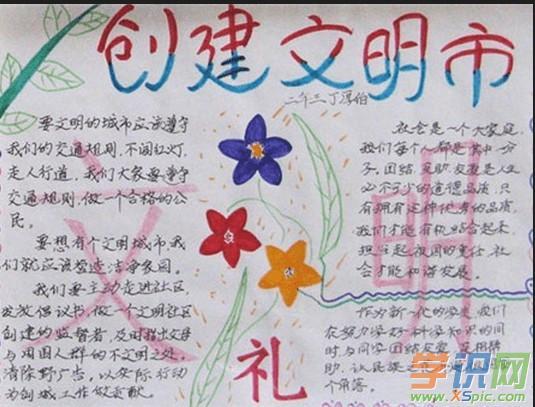 创建文明市
二年三 丁淳伯
要文明的城市应该遵守
我们的交通规则,不闯红灯,
走人行道,我们大家要遵守
交通规则,做一个合格的公
民。
要想有个文明城市我
们就应该营造洁净家园。
我们要主动走进社区
发放倡议书,做一个文明社区
创建的监督者,及时指出父母
与周围人群的不文明之处,
清除野广告,以实际行动
为创城工作做贡献。
社会是一个大家庭,
我们每个人都是其中一分
子。团结、互助、友爱是人生
必不可少的道德品质,只
有拥有这种优秀的品质,
我们才能有机结合起来,
担当起祖国的重任,社
会才能和谐发展。
作为新一代的学生,我们
在努力学好科学知识的同
时与同学团结友爱,互相帮
助,认民族
个角落。
文
明
礼
学识网
www.XSpic.com